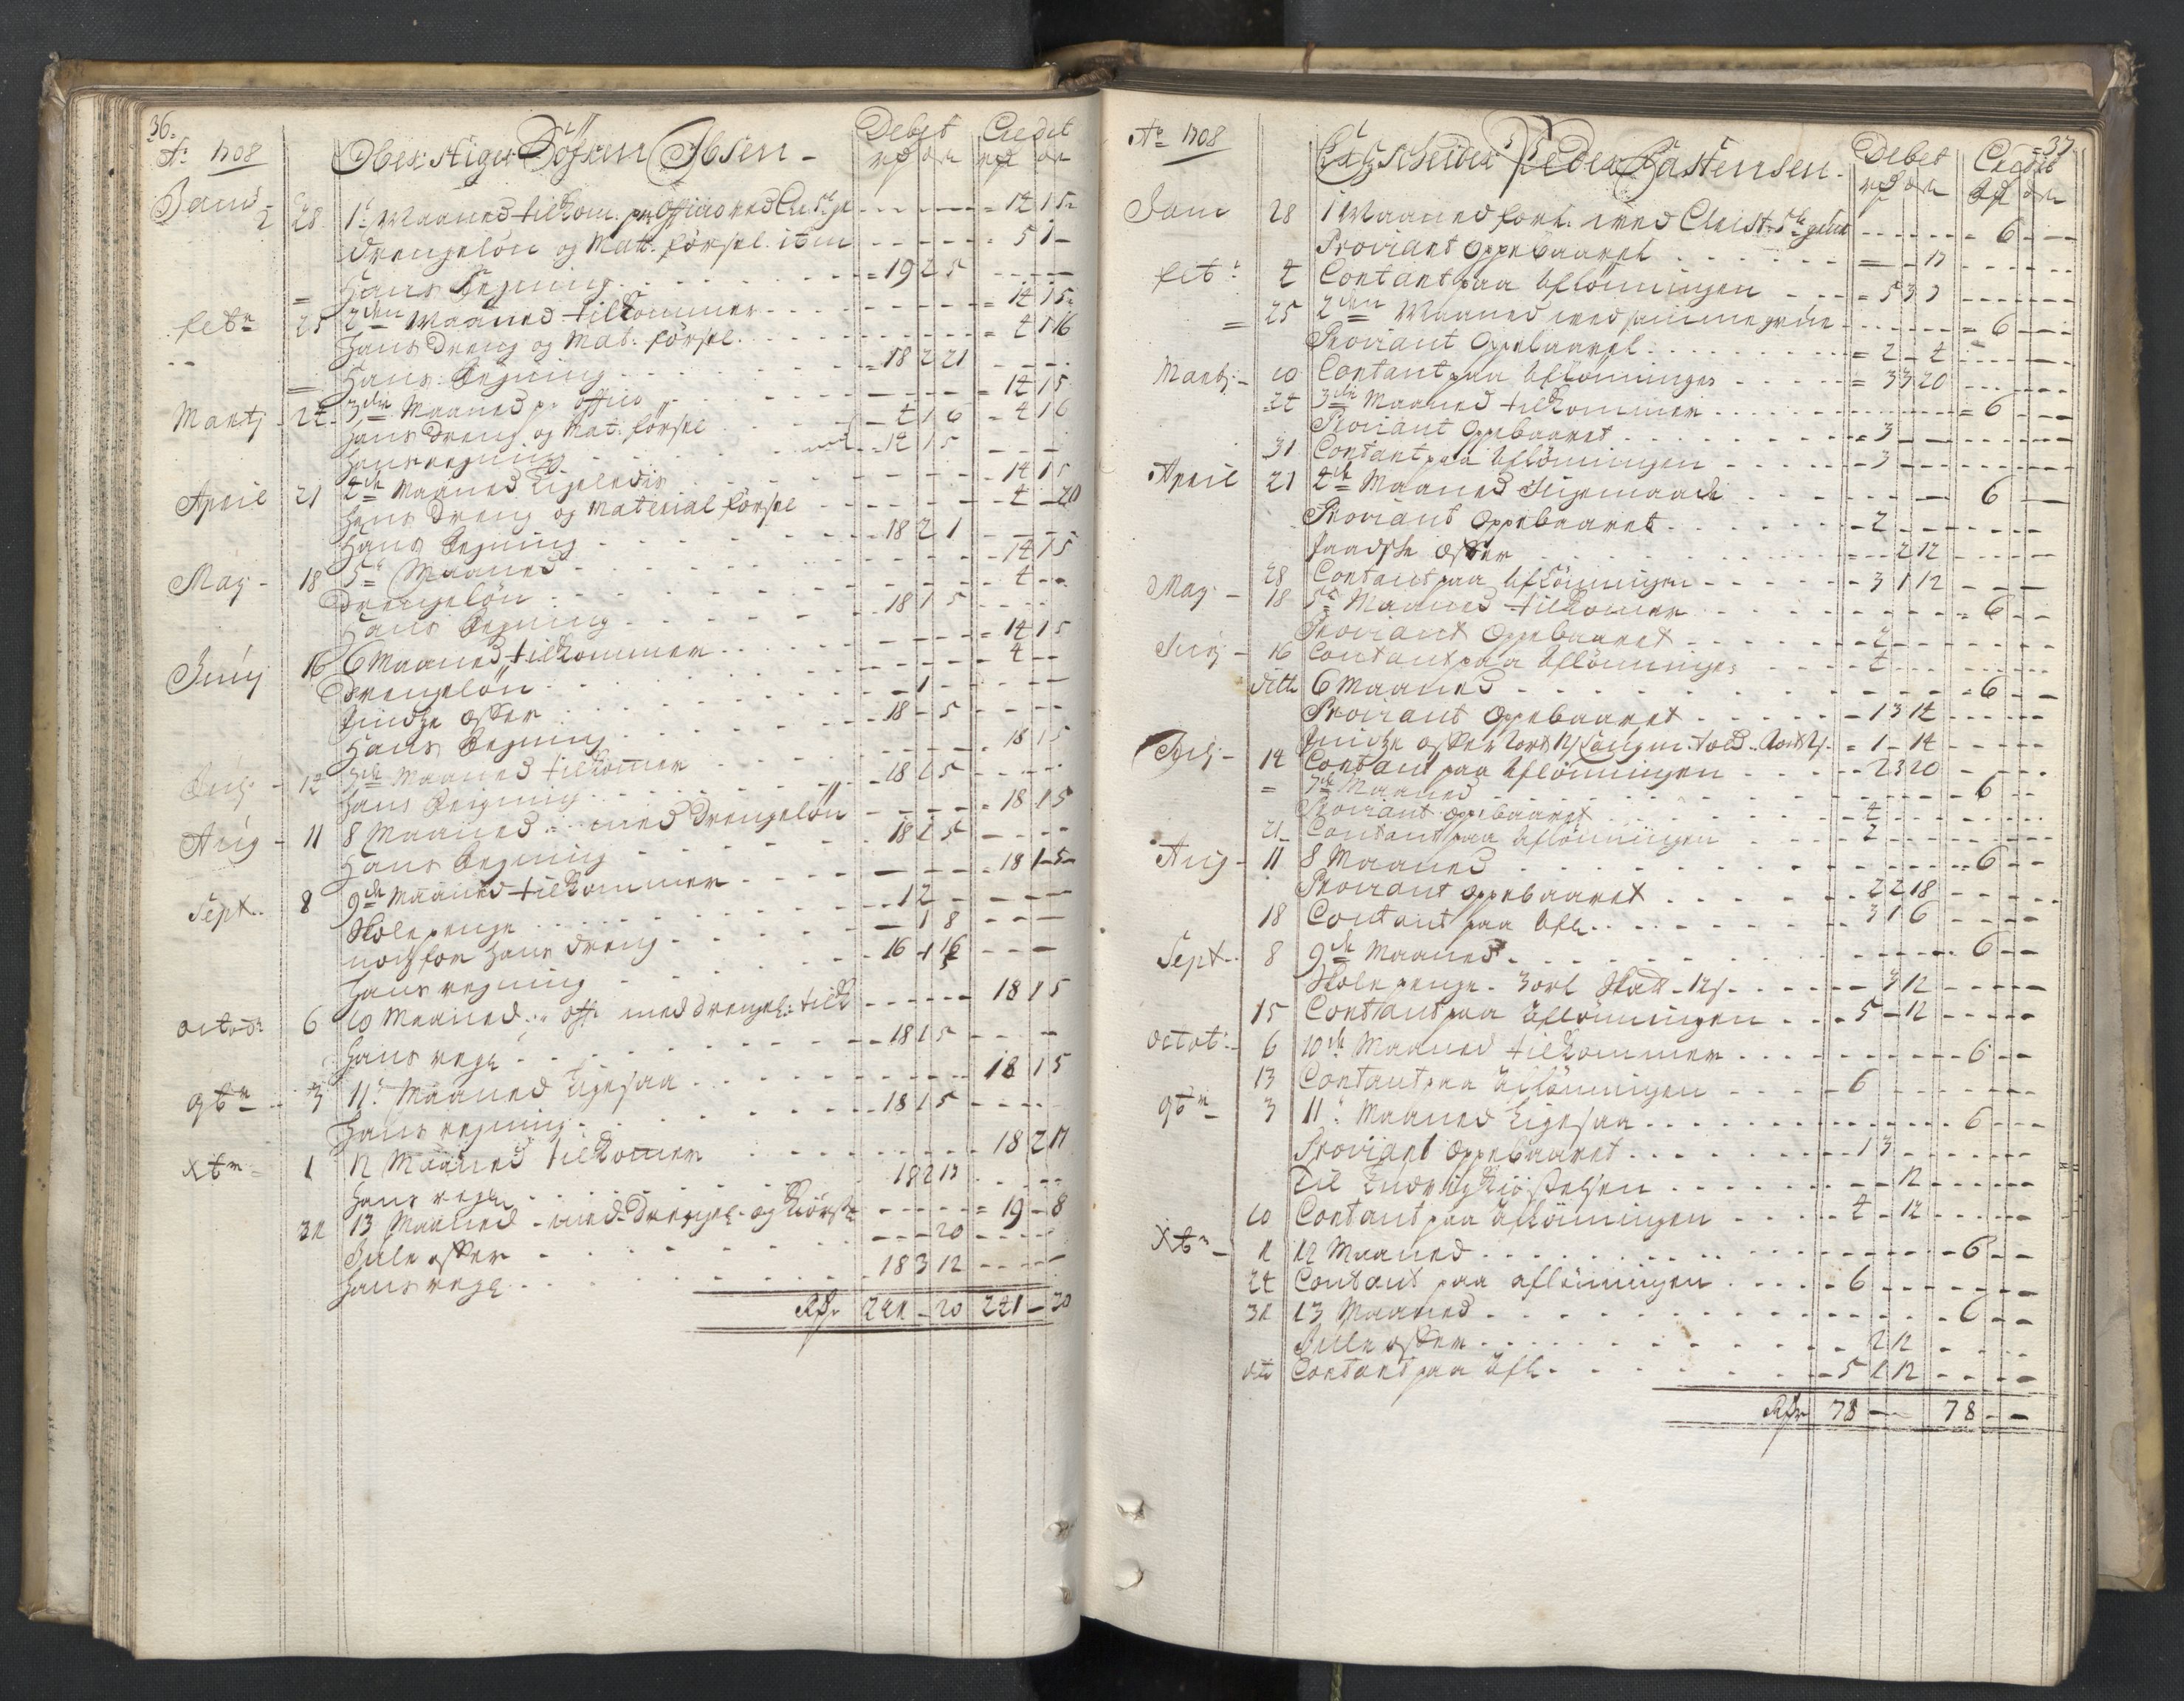 36.
Ao 1708
Ober Stiger Söfren Ibsen -
Debet Credit
rd ort rd ort
Janu 28 1t Maaned tilkom. pr Officio - - - 14 1 5
Drengeløn og Mat: førsel - - - 5 1 -
Hans Regning - - - 19 2 5
febr 25 2den Maaned tilkommer - - - 14 1 5
Hans Dreng og Mat: førsel - - - 4 1 16
Hans Regning - - - 18 2 21
Martj 24 3die Maaned pr officio - - - 14 1 5
Hans Dreng og Mat: førsel - - - 4 1 6 - 4 1 6
Hans regning - - - 14 1 5
April 21 4de Maaned Ligeledis - - - 14 1 5
Hans Dreng og Material førsel - - - 4 - 20
Hans Regning - - - 18 2 1
May - 18 5te Maaned - - - 14 1 5
Drengeløn - - - 4 - -
Hans Regning - - - 18 1 5
Junij 16 6 Maaned tilkommer - - - 14 1 5
Drengeløn - - - 4 - -
Pindze offer - - - 1 -
Hans Regning - - - 18 - 5
Julj - 14 7de Maaned tilkommer - - - 18 1 5
Hans Regning - - - 18 1 5
Aug - 11 8 Maaned med Drengeløn - - - 18 1 5
Hans Regning - - - 18 1 5
Sept. 8 9de Maaned tilkommer - - - 18 1 5
Skole penge - - - 1 2
nock for hans dreng - - - 1 8
Hans regning - - - 16
6 10 Maaned med drengel: - - - 18 1 5
Hans regn - - - 18 1 5
9br - 3 11t Maaned Ligesaa - - - 18 1 5
Hans regning - - - 18 1 5
Xbr - 1 12 Maaned tilkommer - - - 18 2 17
Hans regn - - - 18 2 17
31 13 Maaned - med Drengel - og - - - 19 - 8
Jule offer - - - 20
Hans regn - - - 18 3 12
Rdr 241 - 20 241 - 20
37.
Ao 1708
Peder Castensen -
Debet Credit
rd ort rd ort
Janu 28 1 Maaned med - - - 6 - -
Proviant Oppebaaret - - - 17
febr 4 Contant paa Afløningen - - - 5 3 7
25 2den Maaned med - - - 6 - -
Proviant Oppebaaret - - - 2 - 4
Martj - 10 Contant paa Afløningen - - - 3 3 20
24 3die Maaned tilkommer - - - 6 - -
Proviant Oppebaaret - - - 3 - -
31 Contant paa Afløningen - - - 3 - -
April 21 4de Maaned Ligemaade - - - 6 - -
Proviant Oppebaaret - - - 2 - -
Paadske Offer - - - 2 12
28 Contant paa Afløningen - - - 3 1 12
May - 18 5te Maaned tilkomer - - - 6 - -
Proviant Oppebaaret - - - 2
Junij - 16 Contant paa Afløninger - - - 4
ditto 6 Maaned - - - 6 - -
Proviant Oppebaaret - - - 1 3 14
Pindze offer - - - 1 - 14
Julj - 14 Contant paa Afløningen - - - 2 3 20
7de Maaned - - - 6 - -
Proviant oppebaaret - - - 4
21 Contant paa Afløningen - - - 2
Aug - 11 8 Maaned - - - 6 - -
Proviant oppebaaret - - - 2 2 18
18 Contant paa Afl. - - - 3 1 6
Sept. 8 9de Maaned - - - 6 - -
Skole penge - 3 ort Skatt - 12s. - - - 3 12
15 Contant paa Afløningen - - - 5 - 12
Octob: 6 10de Maaned tilkommer - - - 6 - -
13 Contant paa Afløningen - - - 6
9br 3 11t Maaned Ligesaa - - - 6 - -
Proviant Oppebaaret - - - 1 3
Til - - - 12
10 Contant paa Afløningen - - - 4 - 12
Xbr - 1 12 Maaned - - - 6 - -
24 Contant paa afløningen - - - 6
31 13 Maaned - - - 6 - -
Jule offer - - - 2 12
dito Contant paa Afl - - - 5 1 12
Rdr 78 - - 78 - -